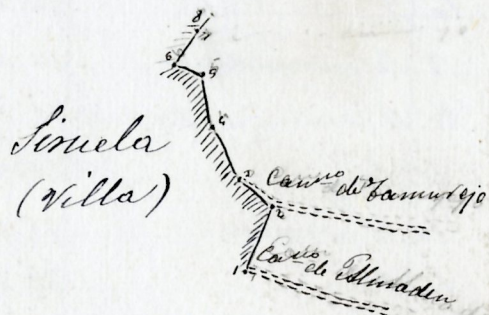 8
7
6
5
4
Siruela
(Villa)
3
Cam.no de Tamurejo
2
Cam.no de Almaden
1